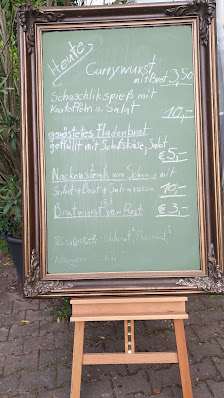 Heute
Currywurst
mit Brot 3,50
Schaschlikspieß mit
Kartoffeln u. Salat
10,-
geröstetes Fladenbrot
gefüllt mit Schafskäse, Salat
€ 5,-
Nackensteak vom Schwein mit
Salat + Brot + Salsarossa 10,-
Bratwurst im Brot € 3,-